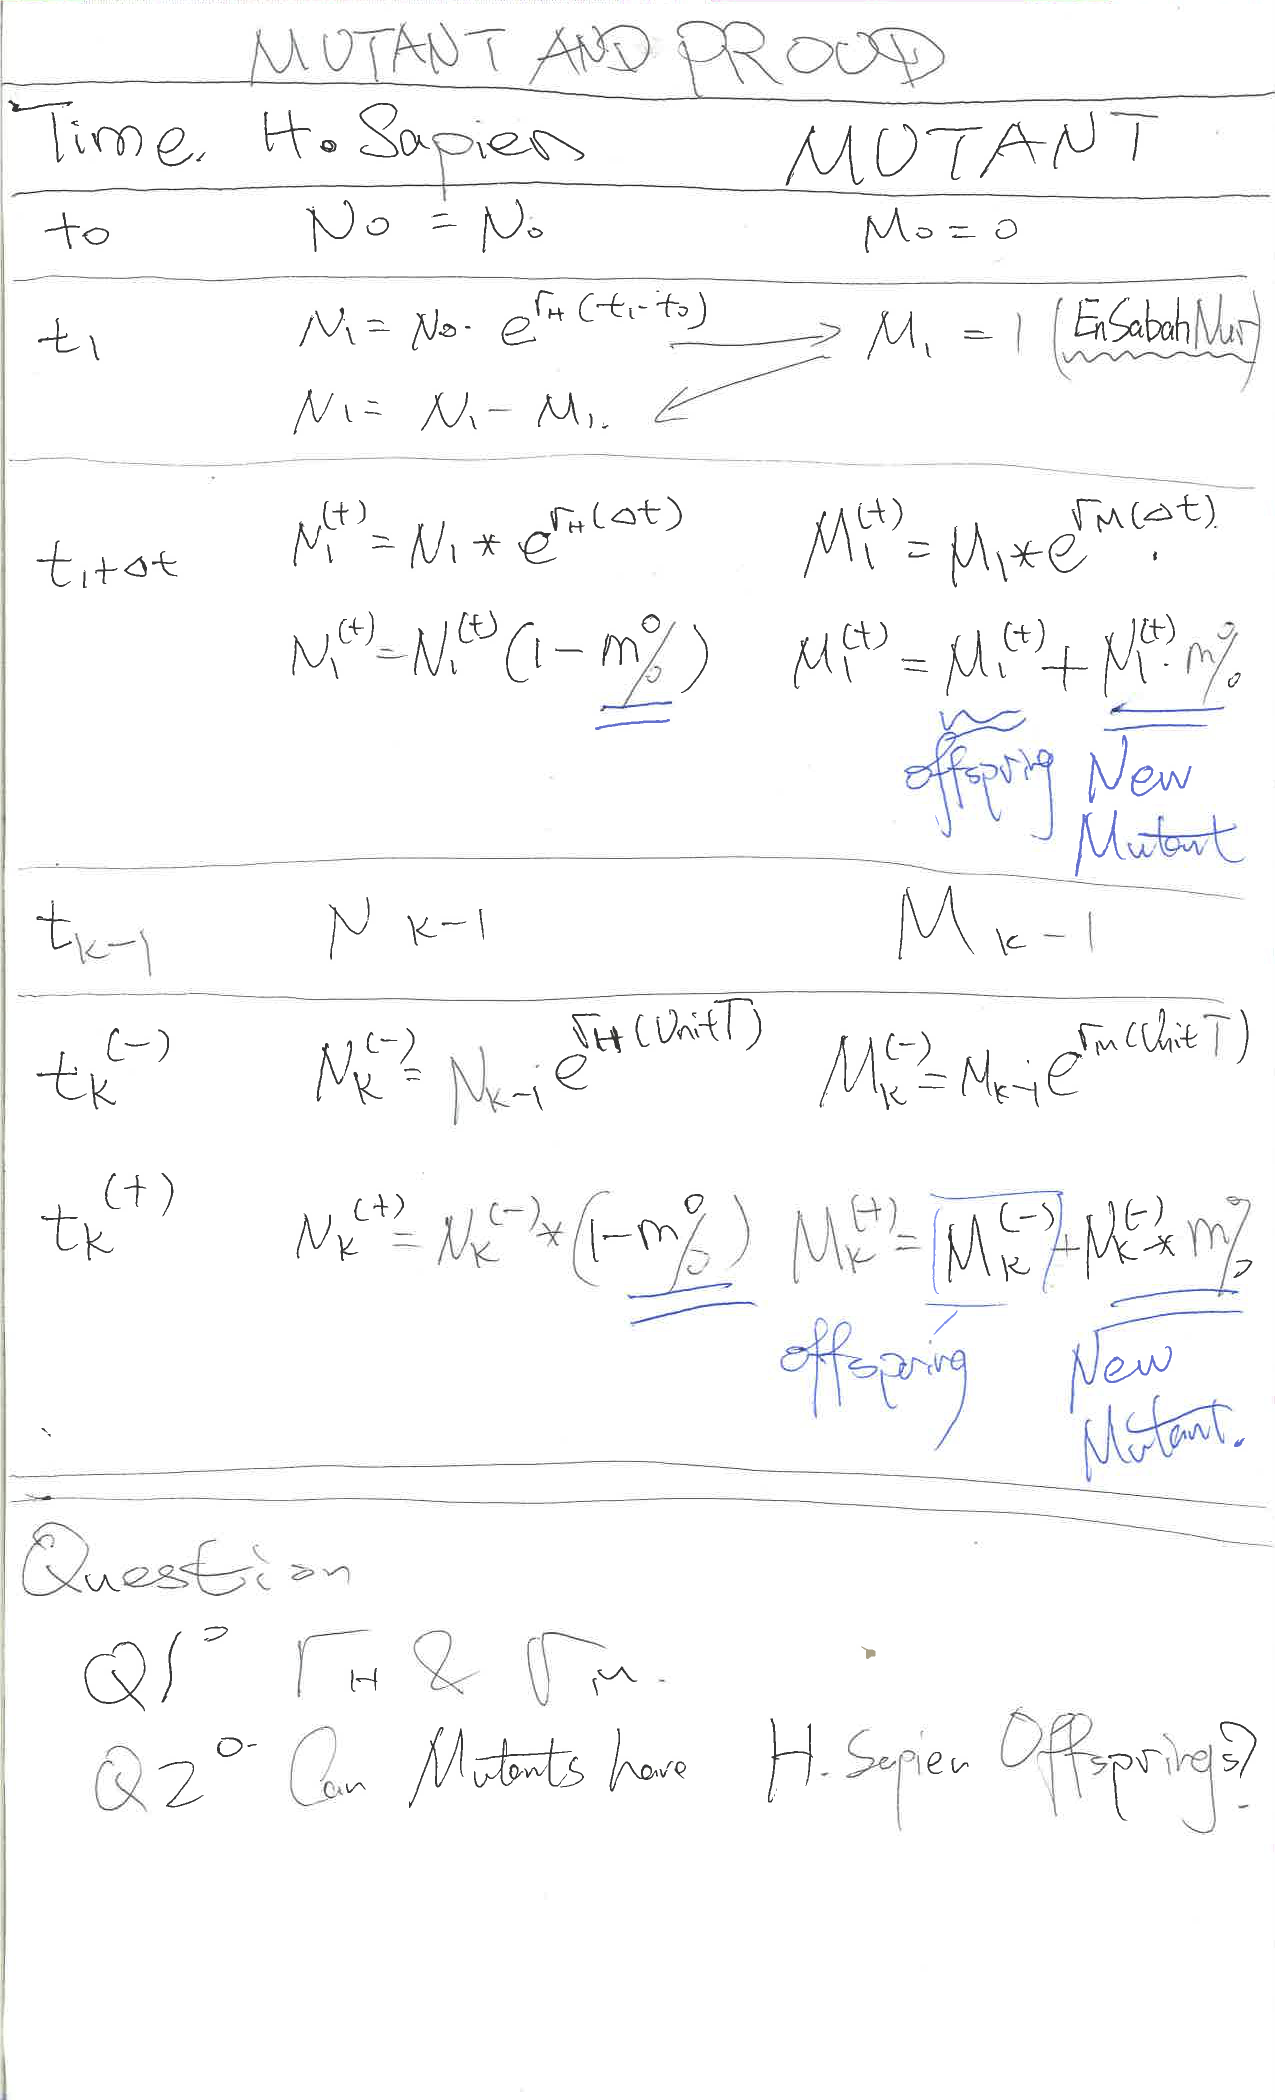 MUTANT AND PROUD
Time. H. Sapien MUTANT
t0 N0 = N0 M0 = 0
t1 N1 = N0 · e^rH(t1-t0) → M1 = 1 (EnSabahNur)
N1 = N1 - M1.
t1+Δt N1^(+) = N1 * e^rH(Δt) M1^(+) = M1 * e^rM(Δt).
N1^(+) = N1^(+) (1 - m%) M1^(+) = M1^(+) + N1^(+) · m%
offspring New
Mutant
tk-1 N k-1 M k-1
tk^(-) Nk^(-) = Nk-1 e^rH(UnitT) Mk^(-) = Mk-1 e^rM(UnitT)
tk^(+) Nk^(+) = Nk^(-) * (1-m%) Mk^(+) = Mk^(-) + Nk^(-) * m%
offspring New
Mutant.
Question
Q1: rH & rM.
Q2: Can Mutants have H. Sapien Offsprings?